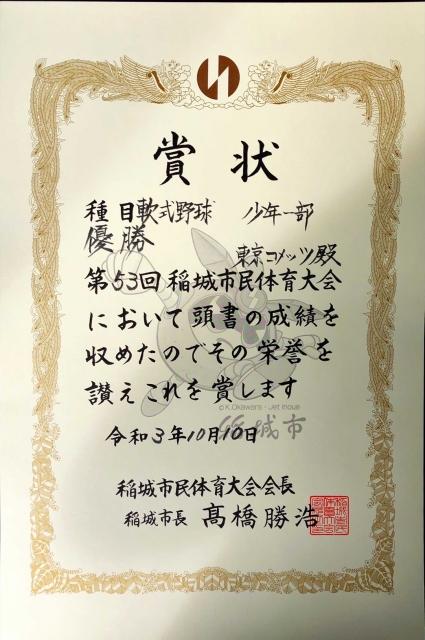 賞状
種目軟式野球 少年一部
優勝
東京コメッツ殿
第53回稲城市民体育大会
において頭書の成績を
収めたのでその栄誉を
讃えこれを賞します
© K.Okawara・Jet Inoue
稲城市
令和3年10月10日
稲城市民体育大会会長
稲城市長 髙橋勝浩